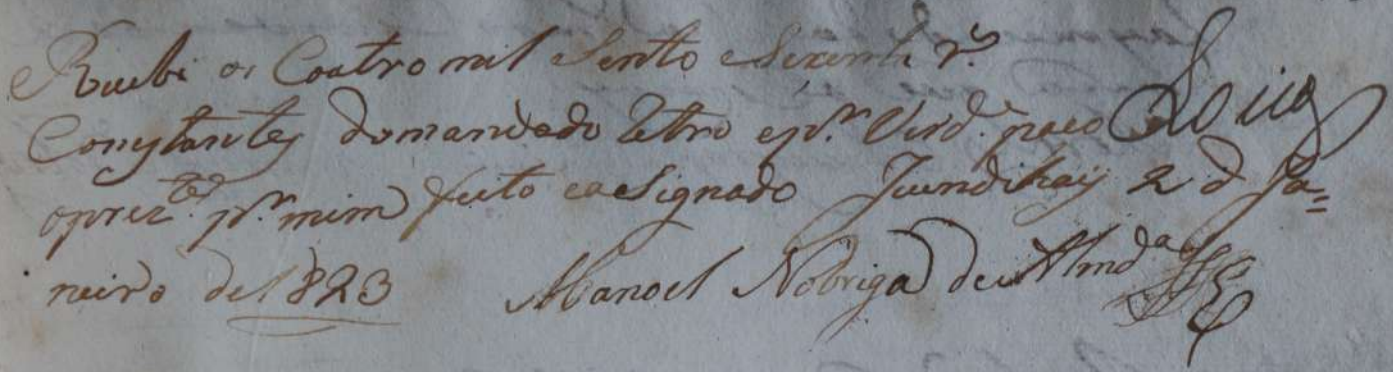 Reubi os Coatro mil Sento Secenta r.s
Constantes domandado Retro e p.r Verd.e paço
oprez.te p.r mim feito e aSignado Juundihay 2 d Ja=
neiro de 1823 Manoel Nobriga de Almd.a